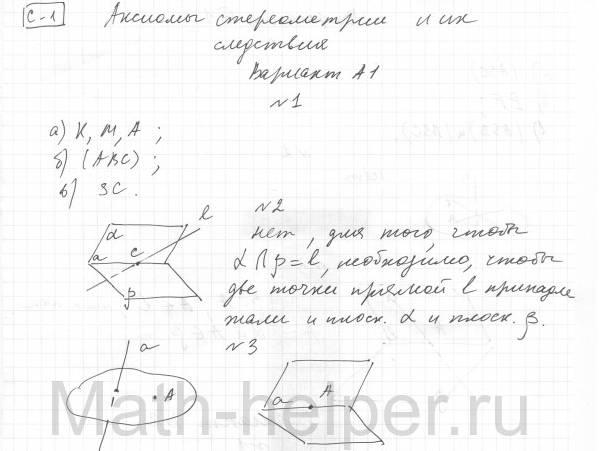 С-1 Аксиомы стереометрии и их
следствия
Вариант А1
№1
а) К, М, А ;
б) (АВС) ;
в) ВС.
№2
нет, для того, чтобы
α ∩ β = l, необходимо, чтобы
две точки прямой l принадле
жали и плоск. α и плоск. β.
№3
α
a
C
l
β
a
A
a
A
Math-helper.ru